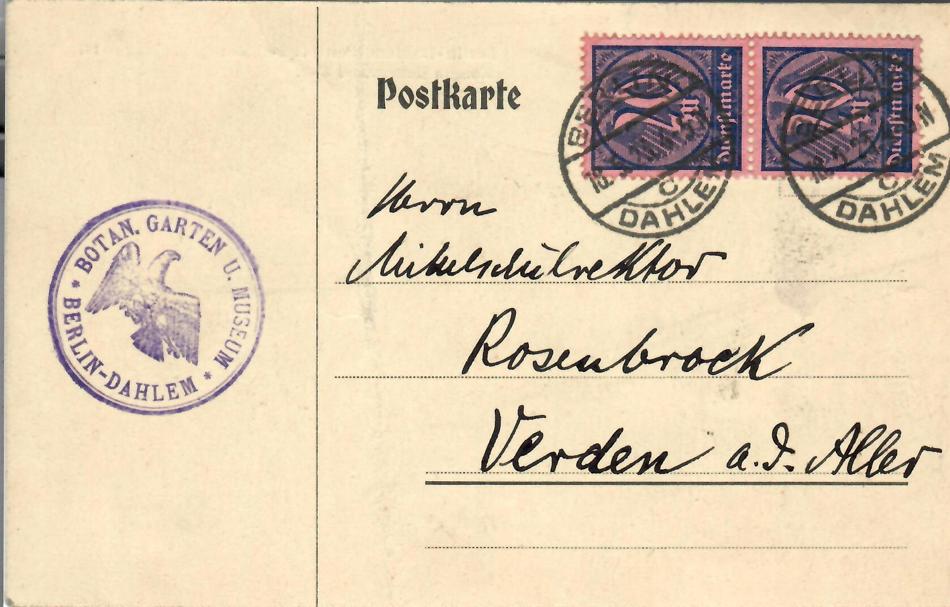 Postkarte
20 M Dienstmarke
20 M Dienstmarke
BERLIN
DAHLEM
BERLIN
DAHLEM
BOTAN. GARTEN U. MUSEUM
* BERLIN-DAHLEM *
Herrn
Mittelschulrektor
Rosenbrock
Verden a. d. Aller